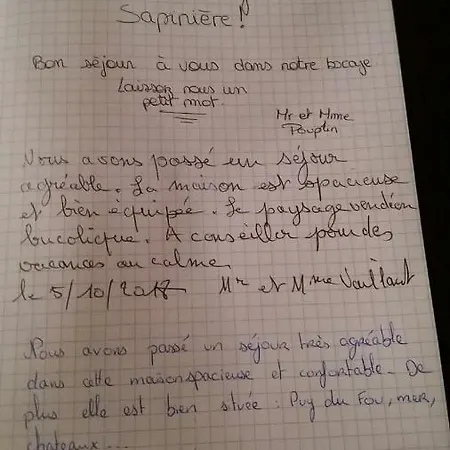 Sapinière !
Bon séjour à vous dans notre bocage
Laissez nous un
petit mot.
Mr et Mme
Pouplin
Nous avons passé un séjour
agréable. La maison est spacieuse
et bien équipée. Le paysage vendéen
bucolique. A conseiller pour des
vacances au calme.
le 5/10/2017 Mr et Mme Vaillant
Nous avons passé un séjour très agréable
dans cette maison spacieuse et confortable - De
plus elle est bien située : Puy du Fou, mer,
chateaux ...